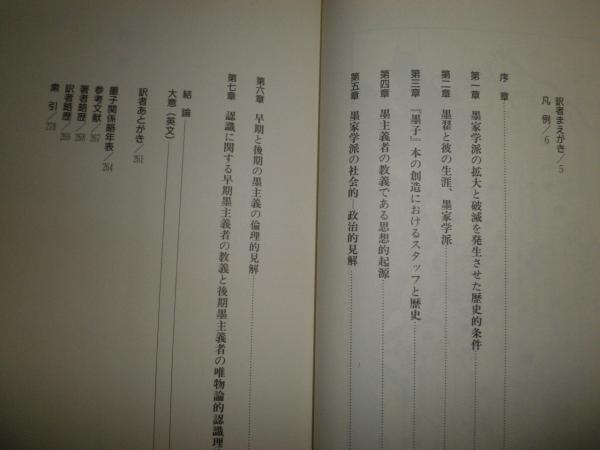 訳者まえがき／5
凡例／6
序章
第一章 墨家学派の拡大と破滅を発生させた歴史的条件
第二章 墨翟と彼の生涯、墨家学派
第三章 『墨子』本の創造におけるスタッフと歴史
第四章 墨主義者の教義である思想的起源
第五章 墨家学派の社会的―政治的見解
第六章 早期と後期の墨主義の倫理的見解
第七章 認識に関する早期墨主義者の教義と後期墨主義者の唯物論的認識理
結論
大意（英文）
訳者あとがき／261
墨子関係略年表／264
参考文献／267
著者略歴／268
訳者略歴／269
索引／278